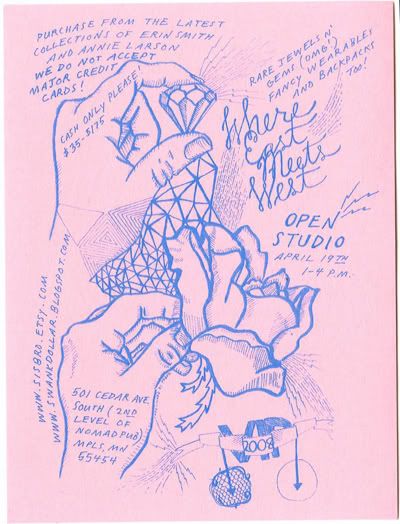 PURCHASE FROM THE LATEST
COLLECTIONS OF ERIN SMITH
AND ANNIE LARSON
WE DO NOT ACCEPT
MAJOR CREDIT
CARDS!
CASH ONLY PLEASE
$35-$175
RARE JEWELS N'
GEMS (OMG!)
FANCY WEARABLES
AND BACKPACKS
TOO!
Where
East
Meets
West
OPEN
STUDIO
APRIL 19TH
1-4 P.M.
WWW.SISBRO.ETSY.COM
WWW.SWANKDOLLAR.BLOGSPOT.COM
501 CEDAR AVE
SOUTH (2ND
LEVEL OF
NOMAD PUB)
MPLS, MN
55454
2008